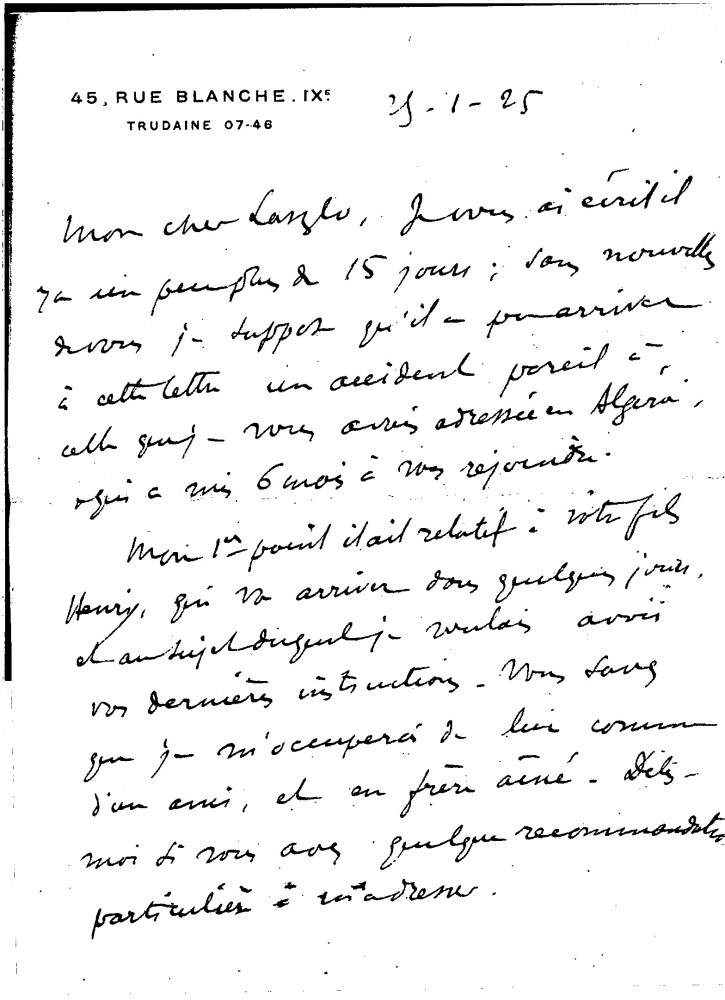 45, RUE BLANCHE. IXE.
TRUDAINE 07-46
25-1-25
Mon cher Laszlo, Je vous ai écrit il
y a un peu plus de 15 jours ; sans nouvelles
de vous je suppose qu'il a pu arriver
à cette lettre un accident pareil à
celle que je vous avais adressée en Algérie,
qui a mis 6 mois à vous rejoindre.
Mon 1er point était relatif à votre fils
Henry, qui va arriver dans quelques jours,
et au sujet duquel je voulais avoir
vos dernières instructions. Vous savez
que je m'occuperai de lui comme
d'un ami, et en frère aîné. Dites-
moi si vous avez quelque recommandation
particulière à m'adresser.